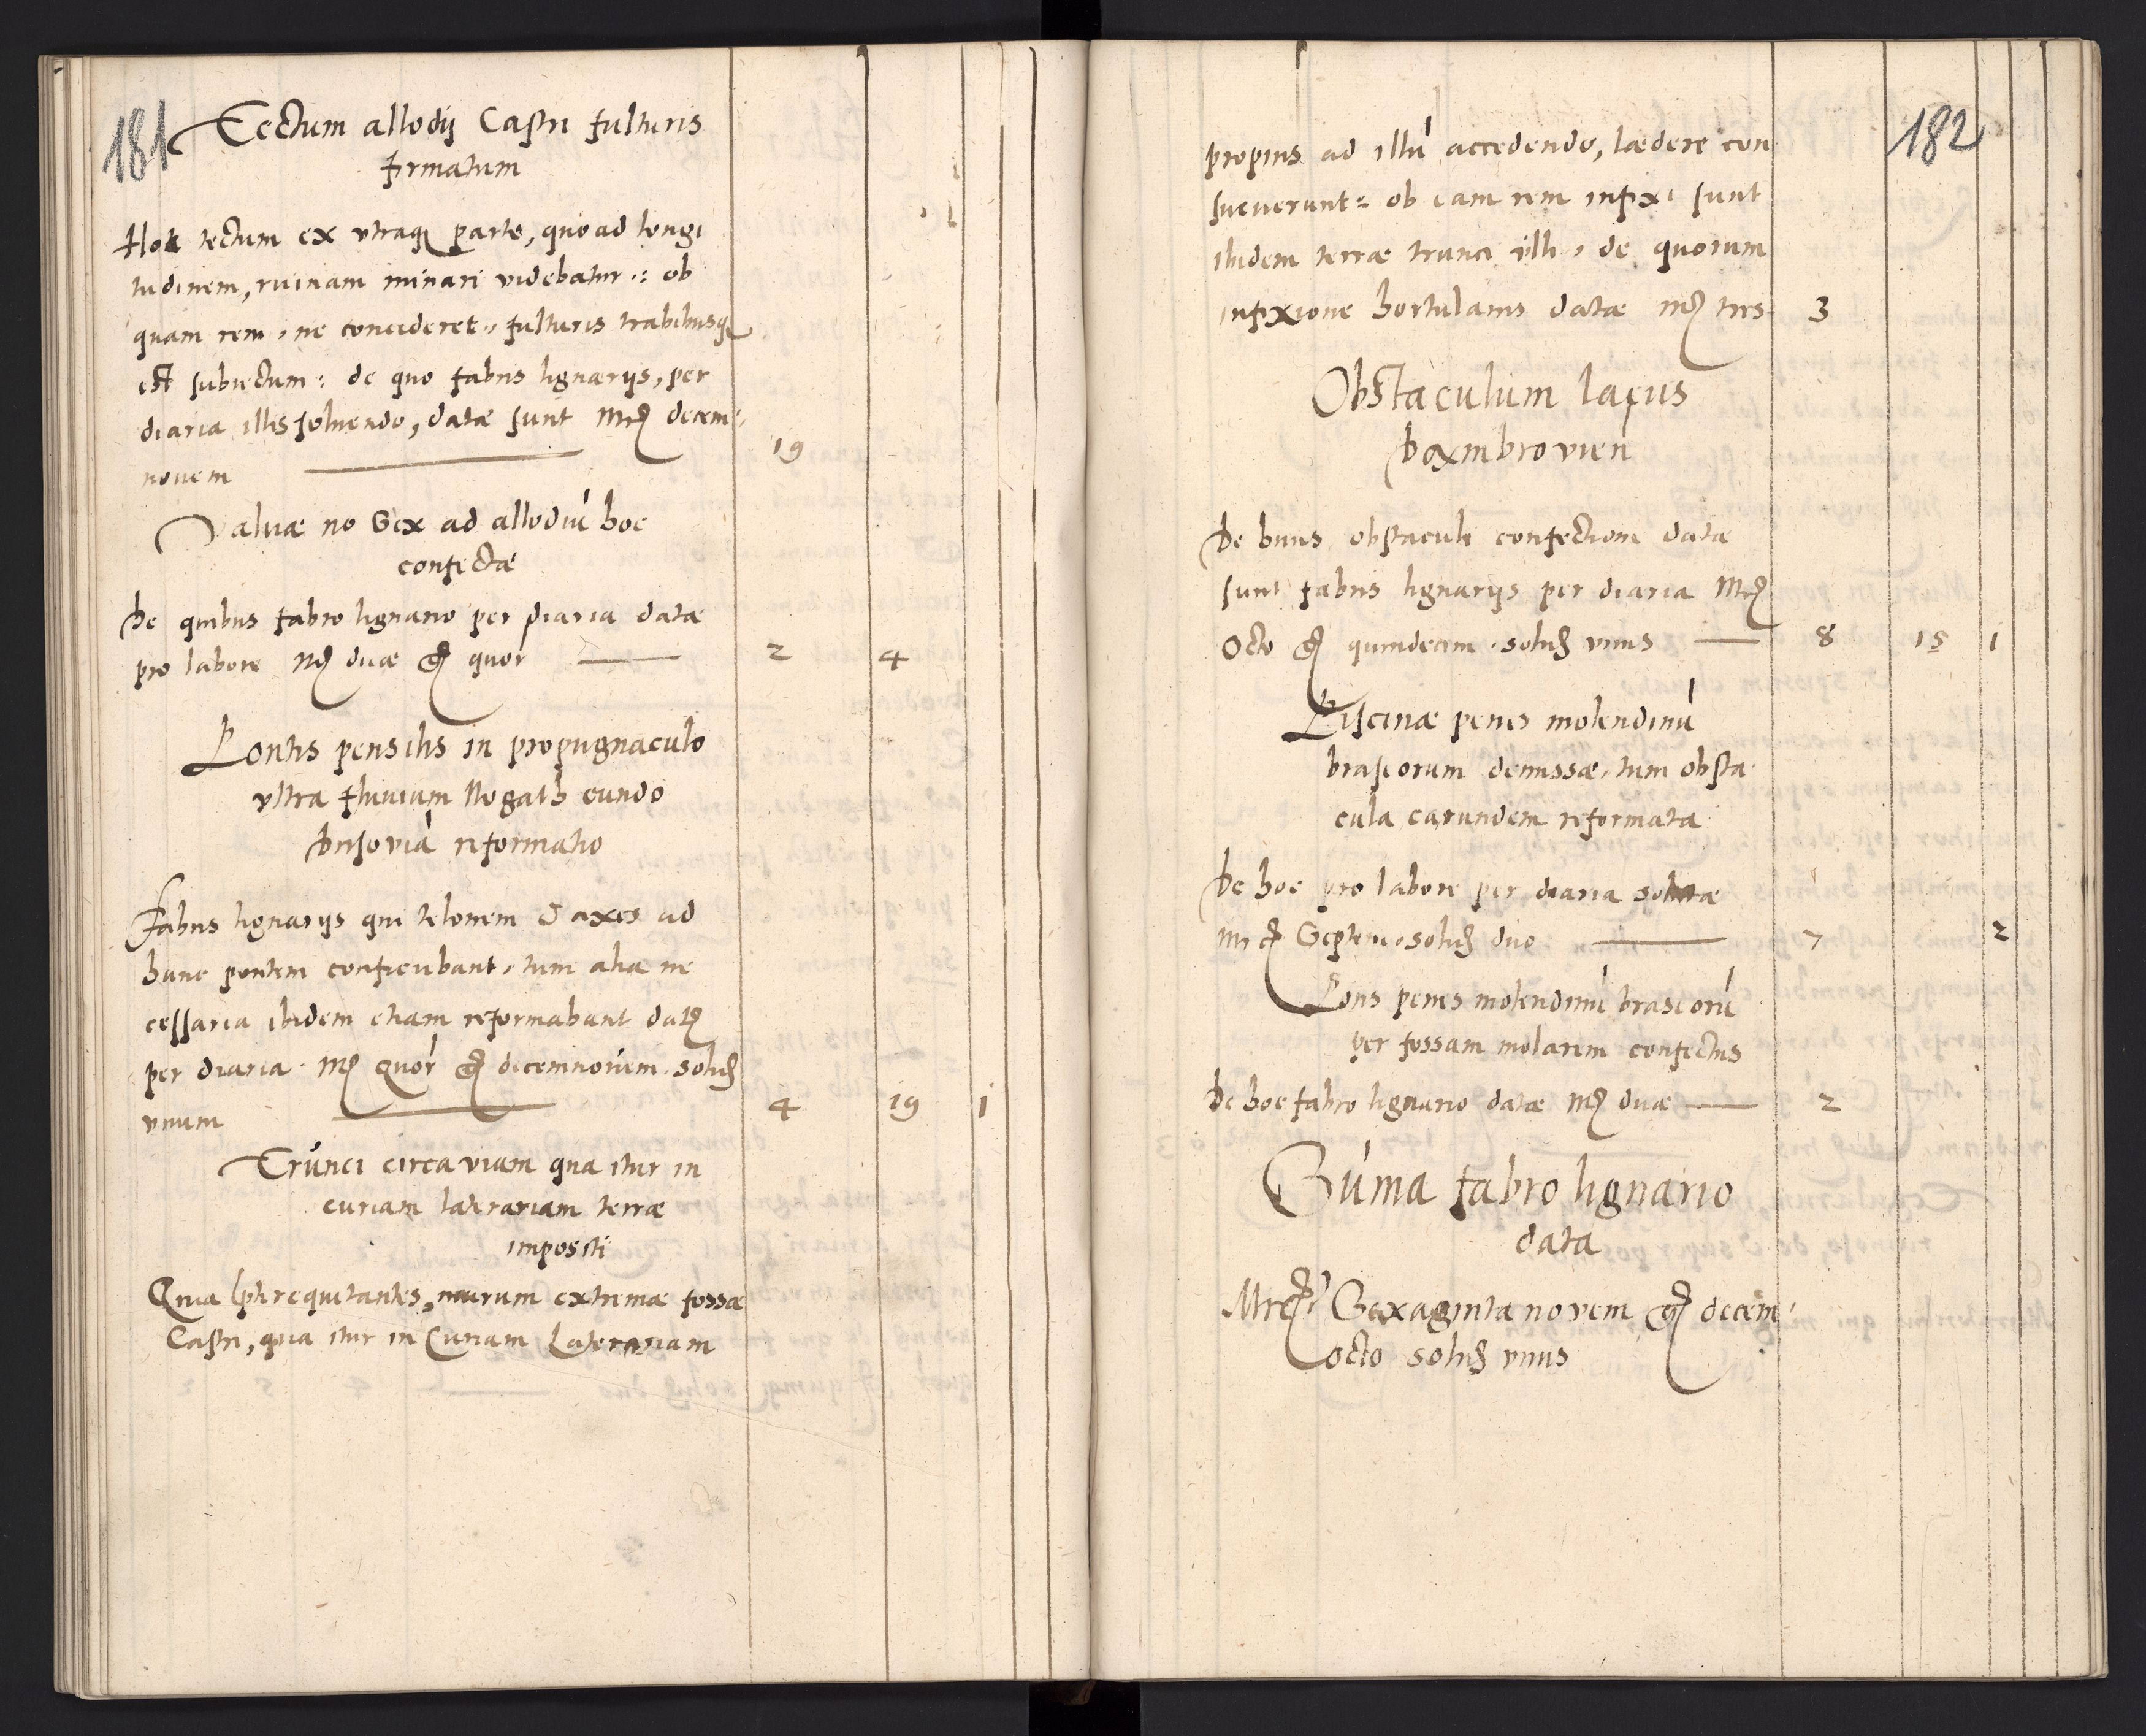 181
Tectum allodij Castri fulturis
firmatum
Hoc tectum ex vtraq parte, quo ad longi
tudinem, ruinam minari videbatur: ob
quam rem, ne concideret, fulturis trabibusq
est subiectum: de quo fabris lignarijs, per
diaria illis soluendo, datæ sunt Mrc decem
novem 19
Valuæ no Sex ad allodiú hoc
confectæ
De quibus fabro lignario per diaria datæ
pro labore Mc duæ g quor 2 4
Pontis pensilis in propugnaculo
vltra fluuium Nogath eundo
reformatio
Fabris lignarijs qui telonem & axes ad
hunc pontem conficiebant, tum alia ne
cessaria ibidem etiam reformabant dat
per diaria Mc Quor g decemnovem solid
vnum 4 19 1
Trúnci circa viam qua itur in
curiam laterariam terræ
impositi
Quia equitantes, murum extremæ fossæ
Castri, qua itur in Curiam Laterariam
182
propius ad illú accedendo, lædere con
sueuerunt: ob eam rem infixi sunt
ibidem terræ trunci illi, de quorum
infixione hortulanis datæ Mc tres 3
Obstaculum lacus
Dambrovien
De huius obstaculi confectione datæ
sunt fabris lignarijs per diaria Mrc
Octo g quindecim solid vnus 8 15 1
Piscinæ penes molendinú
brasiorum demissæ, tum obsta
cula earundem reformata
De hoc pro labore per diaria solutæ
mrc Septem solid duo 7 2
Pons penes molendinú brasiorú
per fossam molarem confectus
De hoc fabro lignario datæ Mc duæ 2
Súma fabro lignario
data
Mrc Sexaginta novem g decem
octo solid vnus